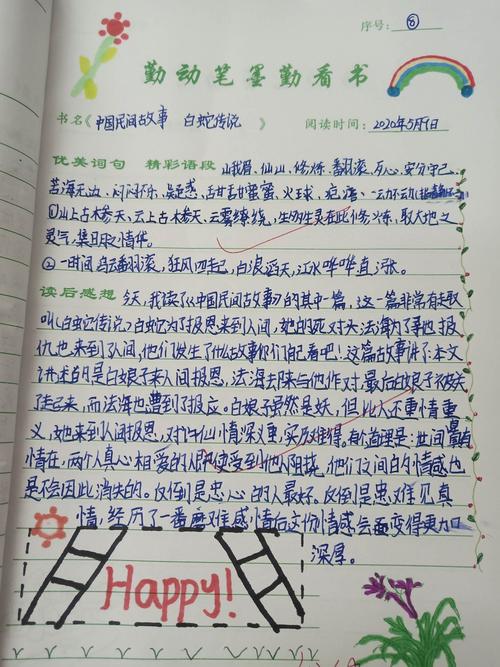 序号: ⑧
勤动笔墨勤看书
书名《中国民间故事 白蛇传说》 阅读时间: 2020年5月1日
优美词句 精彩语段 峨眉、仙山、修炼、翻滚、万心、安分守己、
苦海无边、闷闷不乐、疑惑、甜甜蜜蜜、火球、一动不动
①山上古木参天、云上古木参天、云雾缭绕,生的生灵在此修炼,取大地之
灵气,集日之情华。
②一时间乌云翻滚,狂风四起,白浪滔天,江水哗哗直涨。
读后感想 今天,我读了《中国民间故事》的其中一篇,这一篇非常有趣
叫《白蛇传说,白蛇为了报恩来到人间,她的死对头法海为了等他报
仇也来到了人间,他们发生了什么故事你们自己看吧!这篇故事讲了:本文
讲述的是白娘子来人间报恩,法海却来与他作对,最后白娘子被关
了起来,而法海也遭到了报应。白娘子虽然是妖,但化人不重情重
义,她来到人间报恩,对许仙情深义重,实历难得。有个道理是:世间最有
情在,两个人真心相爱的人即使受到他人阻挠,他们之间的情感也
是不会因此消失的。反倒是忠心的人最好。反倒是患难见真
情,经历了一番磨难感情后这份情感会变得更加
深厚。
Happy!